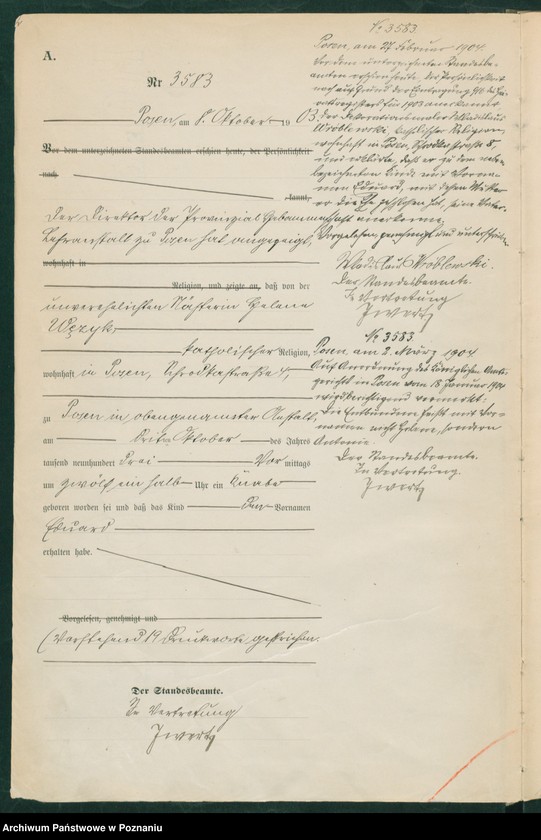 A.
Nr 3583
Posen, am 8. Oktober 1903.
Vor dem unterzeichneten Standesbeamten erschien heute, der Persönlichkeit
nach
kannt,
Der Direktor der Provinzial Hebammen
Lehranstalt zu Posen hat angezeigt,
wohnhaft in
Religion, und zeigte an, daß von der
unverehelichten Näherin Helene
Węzyk
katholischer Religion,
wohnhaft in Posen, Schrodkastraße 4,
zu Posen in obengenannter Anstalt,
am dritten Oktober des Jahres
tausend neunhundert drei Vor mittags
um zwölf ein halb Uhr ein Knabe
geboren worden sei und daß das Kind den Vornamen
Eduard
erhalten habe.
Vorgelesen, genehmigt und
(Vorstehend 19 Druckworte gestrichen.
Der Standesbeamte.
In Vertretung
No 3583.
Posen, am 27. Februar 1904.
Vor dem unterzeichneten Standesbe-
amten erschien heute, der Persönlichkeit
nach auf Grund der Eintragung
für 1903 anerkannt
der Dekorationsmaler Wladislaus
Wróblewski, katholischer Religion,
wohnhaft in Posen, Schrodkastraße
und erklärte, daß er zu dem neben-
bezeichneten Kinde mit Vorna-
men Eduard, mit dessen Mutter
er die Ehe geschlossen hat, seine Vater-
schaft anerkenne.
Vorgelesen, genehmigt und unterschrieben
Wladislaus Wróblewski.
Der Standesbeamte.
In Vertretung
No 3583.
Posen am 2. März 1904
Auf Anordnung des Königlichen Amts-
gerichts in Posen vom 18. Januar 1904
wird berichtigend vermerkt:
Die Entbundene heißt mit Vor-
namen nicht Helene, sondern
Antonie.
Der Standesbeamte.
In Vertretung.
Archiwum Państwowe w Poznaniu